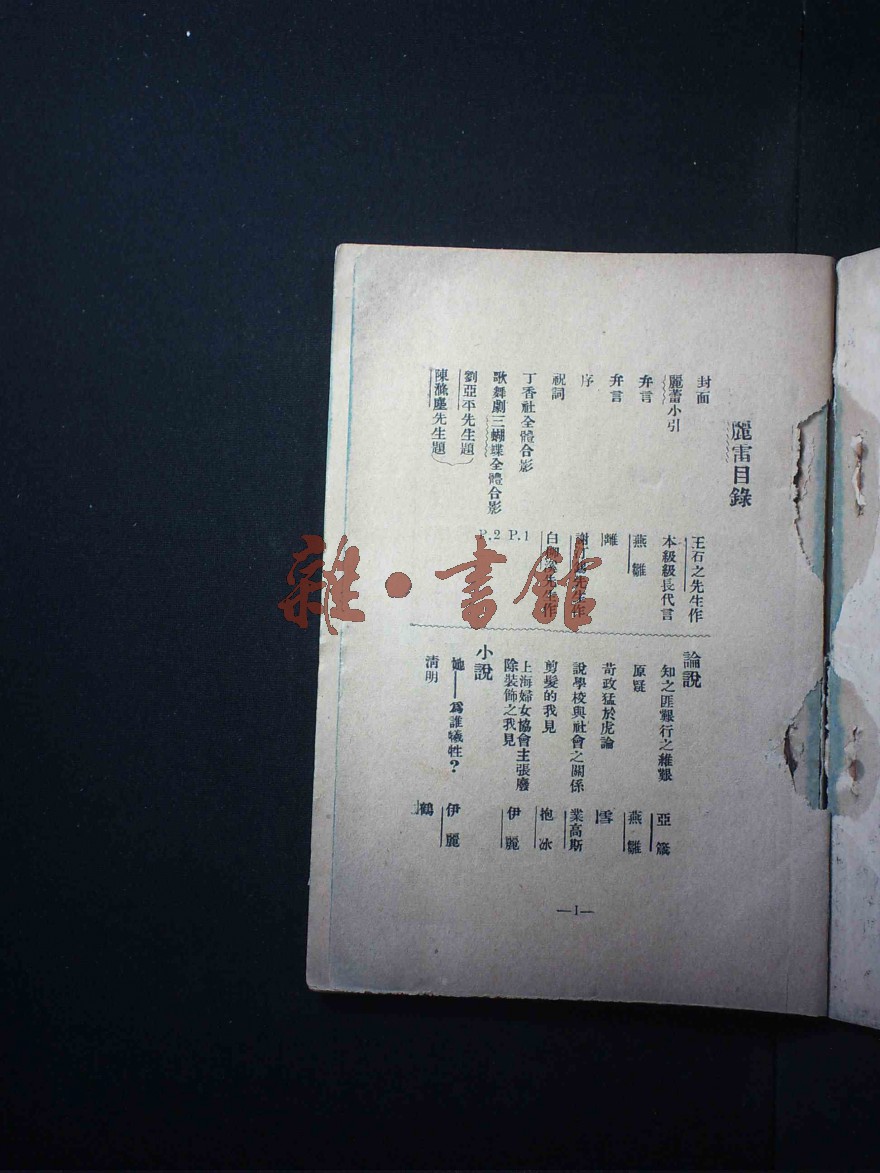 麗雷目錄
封面 王石之先生作
麗蕾小引 本級級長代言
弁言 燕雛
弁言 雌
序
祝詞 白
丁香社全體合影 P.1
歌舞劇三蝴蝶全體合影 P.2
劉亞平先生題
陳滌塵先生題
論說
知之匪艱行之維艱 亞
原疑 燕雛
苛政猛於虎論 雪
說學校與社會之關係 業高斯
剪髮的我見 抱冰
上海婦女協會主張廢
除裝飾之我見 伊麗
小說
她——爲誰犧牲？ 伊麗
清明 鶴
—1—
雜·書館